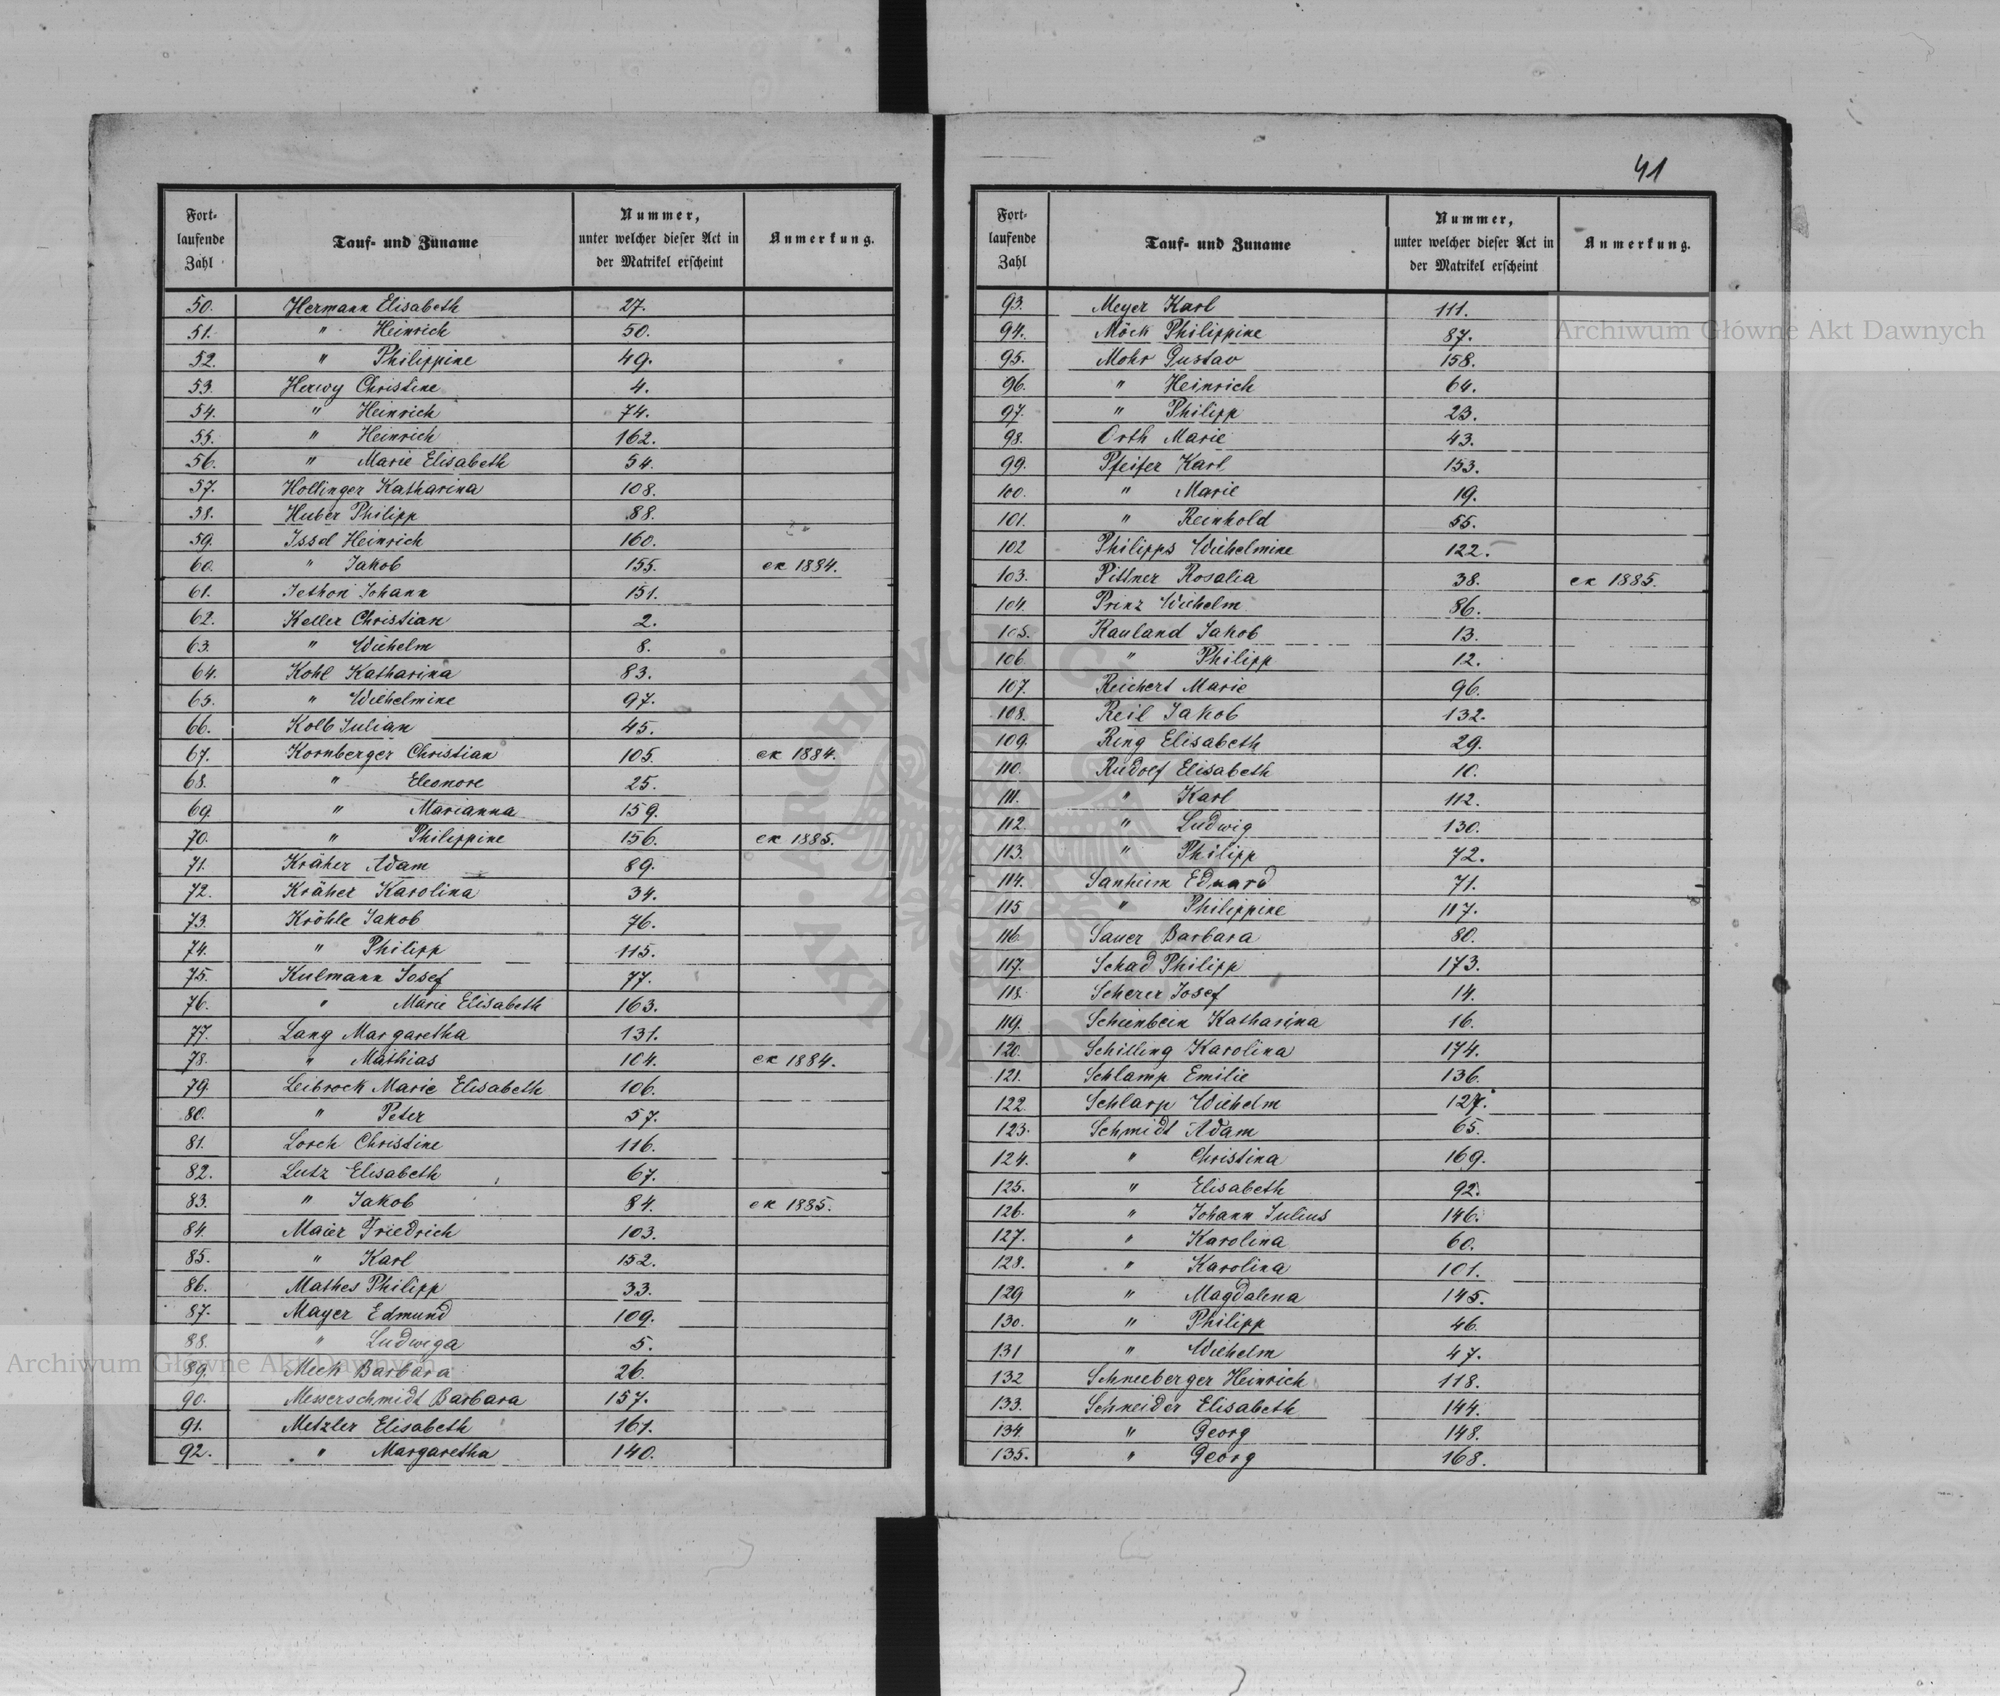 41
Fort-
laufende
Zahl
Tauf- und Zuname
Nummer,
unter welcher dieser Act in
der Matrikel erscheint
Anmerkung.
50. Hermann Elisabeth 27.
51. " Heinrich 50.
52. " Philippine 49.
53. Herwy Christine 4.
54. " Heinrich 74.
55. " Heinrich 162.
56. " Marie Elisabeth 54.
57. Hollinger Katharina 108.
58. Huber Philipp 88.
59. Issel Heinrich 160.
60. " Jakob 155. ex 1884.
61. Jethon Johann 151.
62. Keller Christian 2.
63. " Wilhelm 8.
64. Kohl Katharina 83.
65. " Wilhelmine 97.
66. Kolb Julian 45.
67. Kornberger Christian 105. ex 1884.
68. " Eleonore 25.
69. " Marianna 159.
70. " Philippine 156. ex 1885.
71. Kräher Adam 89.
72. Kräher Karolina 34.
73. Kröhle Jakob 76.
74. " Philipp 115.
75. Kulmann Josef 77.
76. " Marie Elisabeth 163.
77. Lang Margaretha 131.
78. " Mathias 104. ex 1884.
79. Leibrock Marie Elisabeth 106.
80. " Peter 57.
81. Lorch Christine 116.
82. Lutz Elisabeth 67.
83. " Jakob 84. ex 1885.
84. Maier Friedrich 103.
85. " Karl 152.
86. Mathes Philipp 33.
87. Mayer Edmund 109.
88. " Ludwiga 5.
89. Meck Barbara 26.
90. Messerschmidt Barbara 157.
91. Metzler Elisabeth 161.
92. " Margaretha 140.
Fort-
laufende
Zahl
Tauf- und Zuname
Nummer,
unter welcher dieser Act in
der Matrikel erscheint
Anmerkung.
93. Meyer Karl 111.
94. Möck Philippine 87.
95. Mohr Gustav 158.
96. " Heinrich 64.
97. " Philipp 23.
98. Orth Marie 43.
99. Pfeifer Karl 153.
100. " Marie 19.
101. " Reinhold 55.
102 Philipps Wilhelmine 122.
103. Pittner Rosalia 38. ex 1885.
104. Prinz Wilhelm 86.
105. Rauland Jakob 13.
106. " Philipp 12.
107. Reichert Marie 96.
108. Reil Jakob 132.
109. Ring Elisabeth 29.
110. Rudolf Elisabeth 10.
111. " Karl 112.
112. " Ludwig 130.
113. " Philipp 72.
114. Sanheim Eduard 71.
115 " Philippine 117.
116. Sauer Barbara 80.
117. Schad Philipp 173.
118. Scherer Josef 14.
119. Schienbein Katharina 16.
120. Schilling Karolina 174.
121. Schlamp Emilie 136.
122. Schlarp Wilhelm 127.
123. Schmidt Adam 65.
124. " Christina 169.
125. " Elisabeth 92.
126. " Johann Julius 146.
127. " Karolina 60.
128. " Karolina 101.
129 " Magdalena 145.
130. " Philipp 46.
131 " Wilhelm 47.
132 Schneeberger Heinrich 118.
133. Schneider Elisabeth 144.
134. " Georg 148.
135. " Georg 168.
Archiwum Główne Akt Dawnych
Archiwum Główne Akt Dawnych